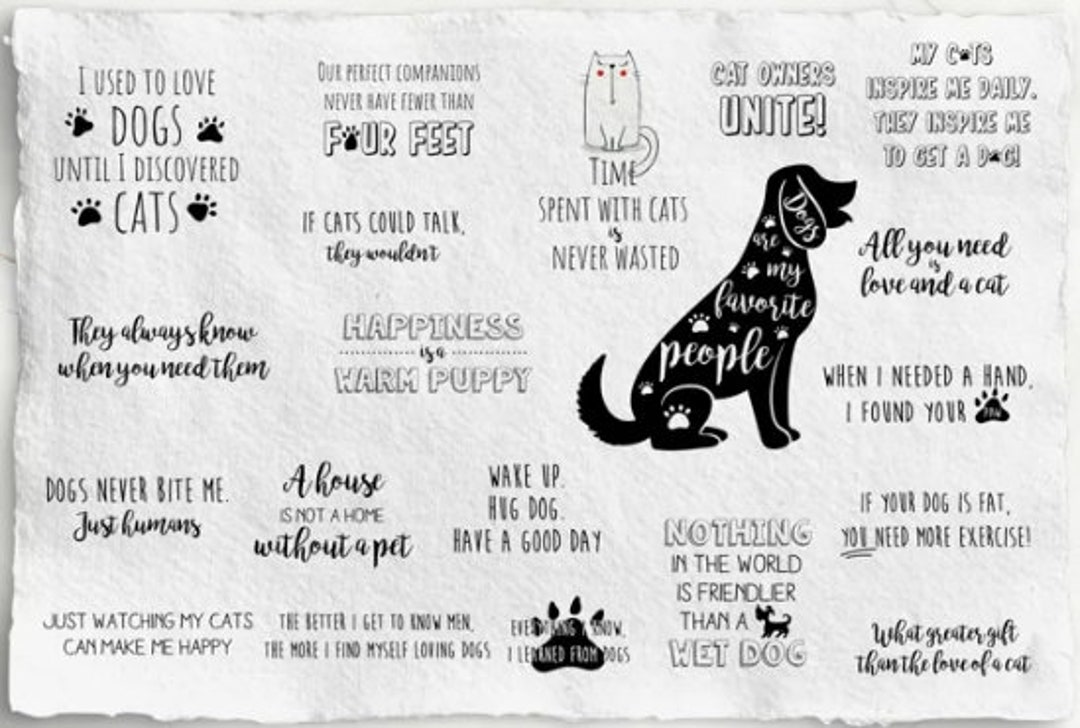 I USED TO LOVE
DOGS
UNTIL I DISCOVERED
CATS
OUR PERFECT COMPANIONS
NEVER HAVE FEWER THAN
FOUR FEET
IF CATS COULD TALK,
they wouldn't
Time
SPENT WITH CATS
is
NEVER WASTED
CAT OWNERS
UNITE!
MY CATS
INSPIRE ME DAILY.
THEY INSPIRE ME
TO GET A DOG!
Dogs
are
my
favorite
people
All you need
is
love and a cat
They always know
when you need them
HAPPINESS
is a
WARM PUPPY
WHEN I NEEDED A HAND,
I FOUND YOUR
PAW
DOGS NEVER BITE ME.
Just humans
A house
IS NOT A HOME
without a pet
WAKE UP.
HUG DOG.
HAVE A GOOD DAY
NOTHING
IN THE WORLD
IS FRIENDLIER
THAN A
WET DOG
IF YOUR DOG IS FAT,
YOU NEED MORE EXERCISE!
JUST WATCHING MY CATS
CAN MAKE ME HAPPY
THE BETTER I GET TO KNOW MEN,
THE MORE I FIND MYSELF LOVING DOGS
EVERYTHING I KNOW,
I LEARNED FROM DOGS
What greater gift
than the love of a cat